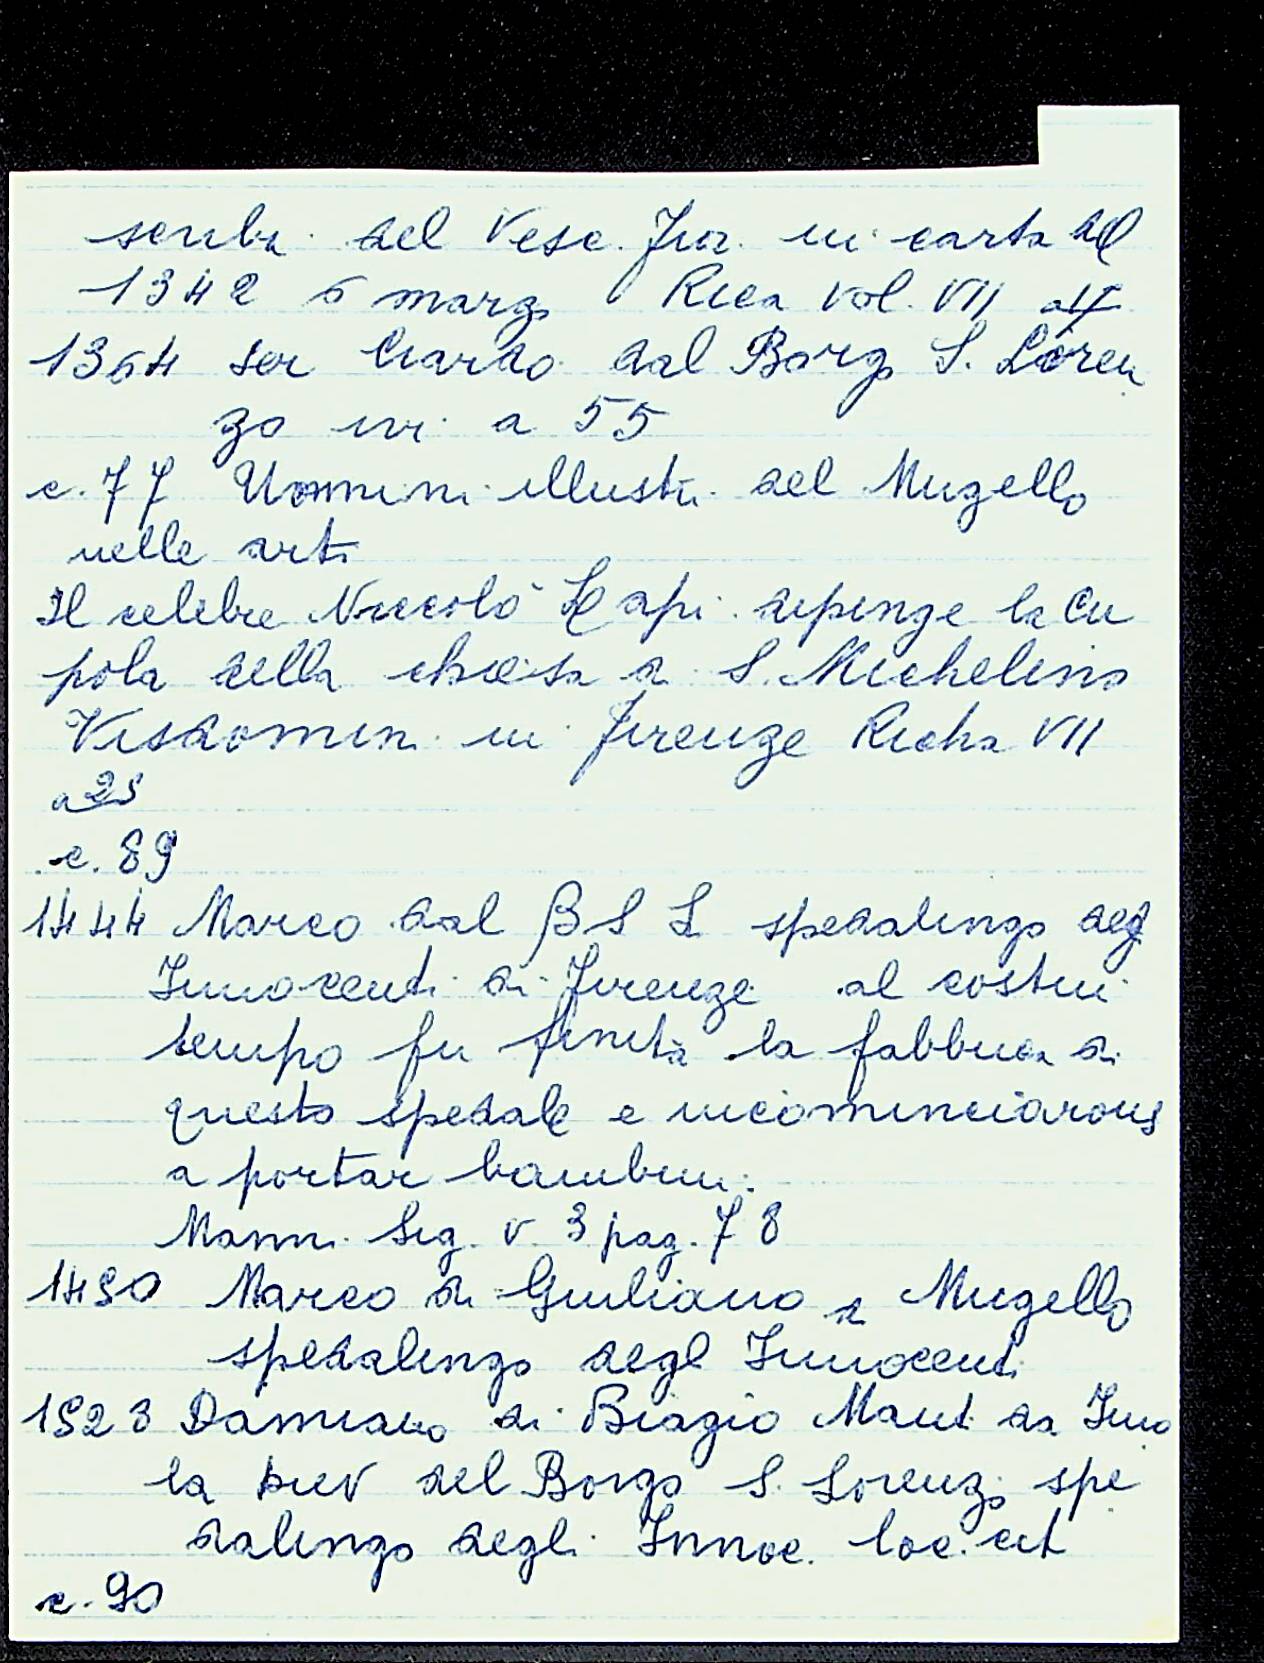 scriba del Vesc. Fior. in carta del
1342 6 marzo Rica vol. VII
1364 ser Ciardo dal Borgo S. Loren
zo ivi a 55
c. 77 Uommini illustri del Mugello
nelle arti
Il celebre Niccolò Lapi dipinge la Cu
pola della chiesa di S. Michelino
Visdomini in Firenze Richa VII
a 25
c. 89
1444 Marco dal B S L spedalingo degl
Innocenti di Firenze al costui
tempo fu finita la fabbrica di
questo spedale e incominciarono
a portar bambini.
Manni Sig. v. 3 pag. 78
1450 Marco di Giuliano di Mugello
spedalingo degl Innocenti
1523 Damiano di Biagio Mant. da Imo
la piev del Borgo S. Lorenzo spe
dalingo degli Innoc. loc. cit
c. 90